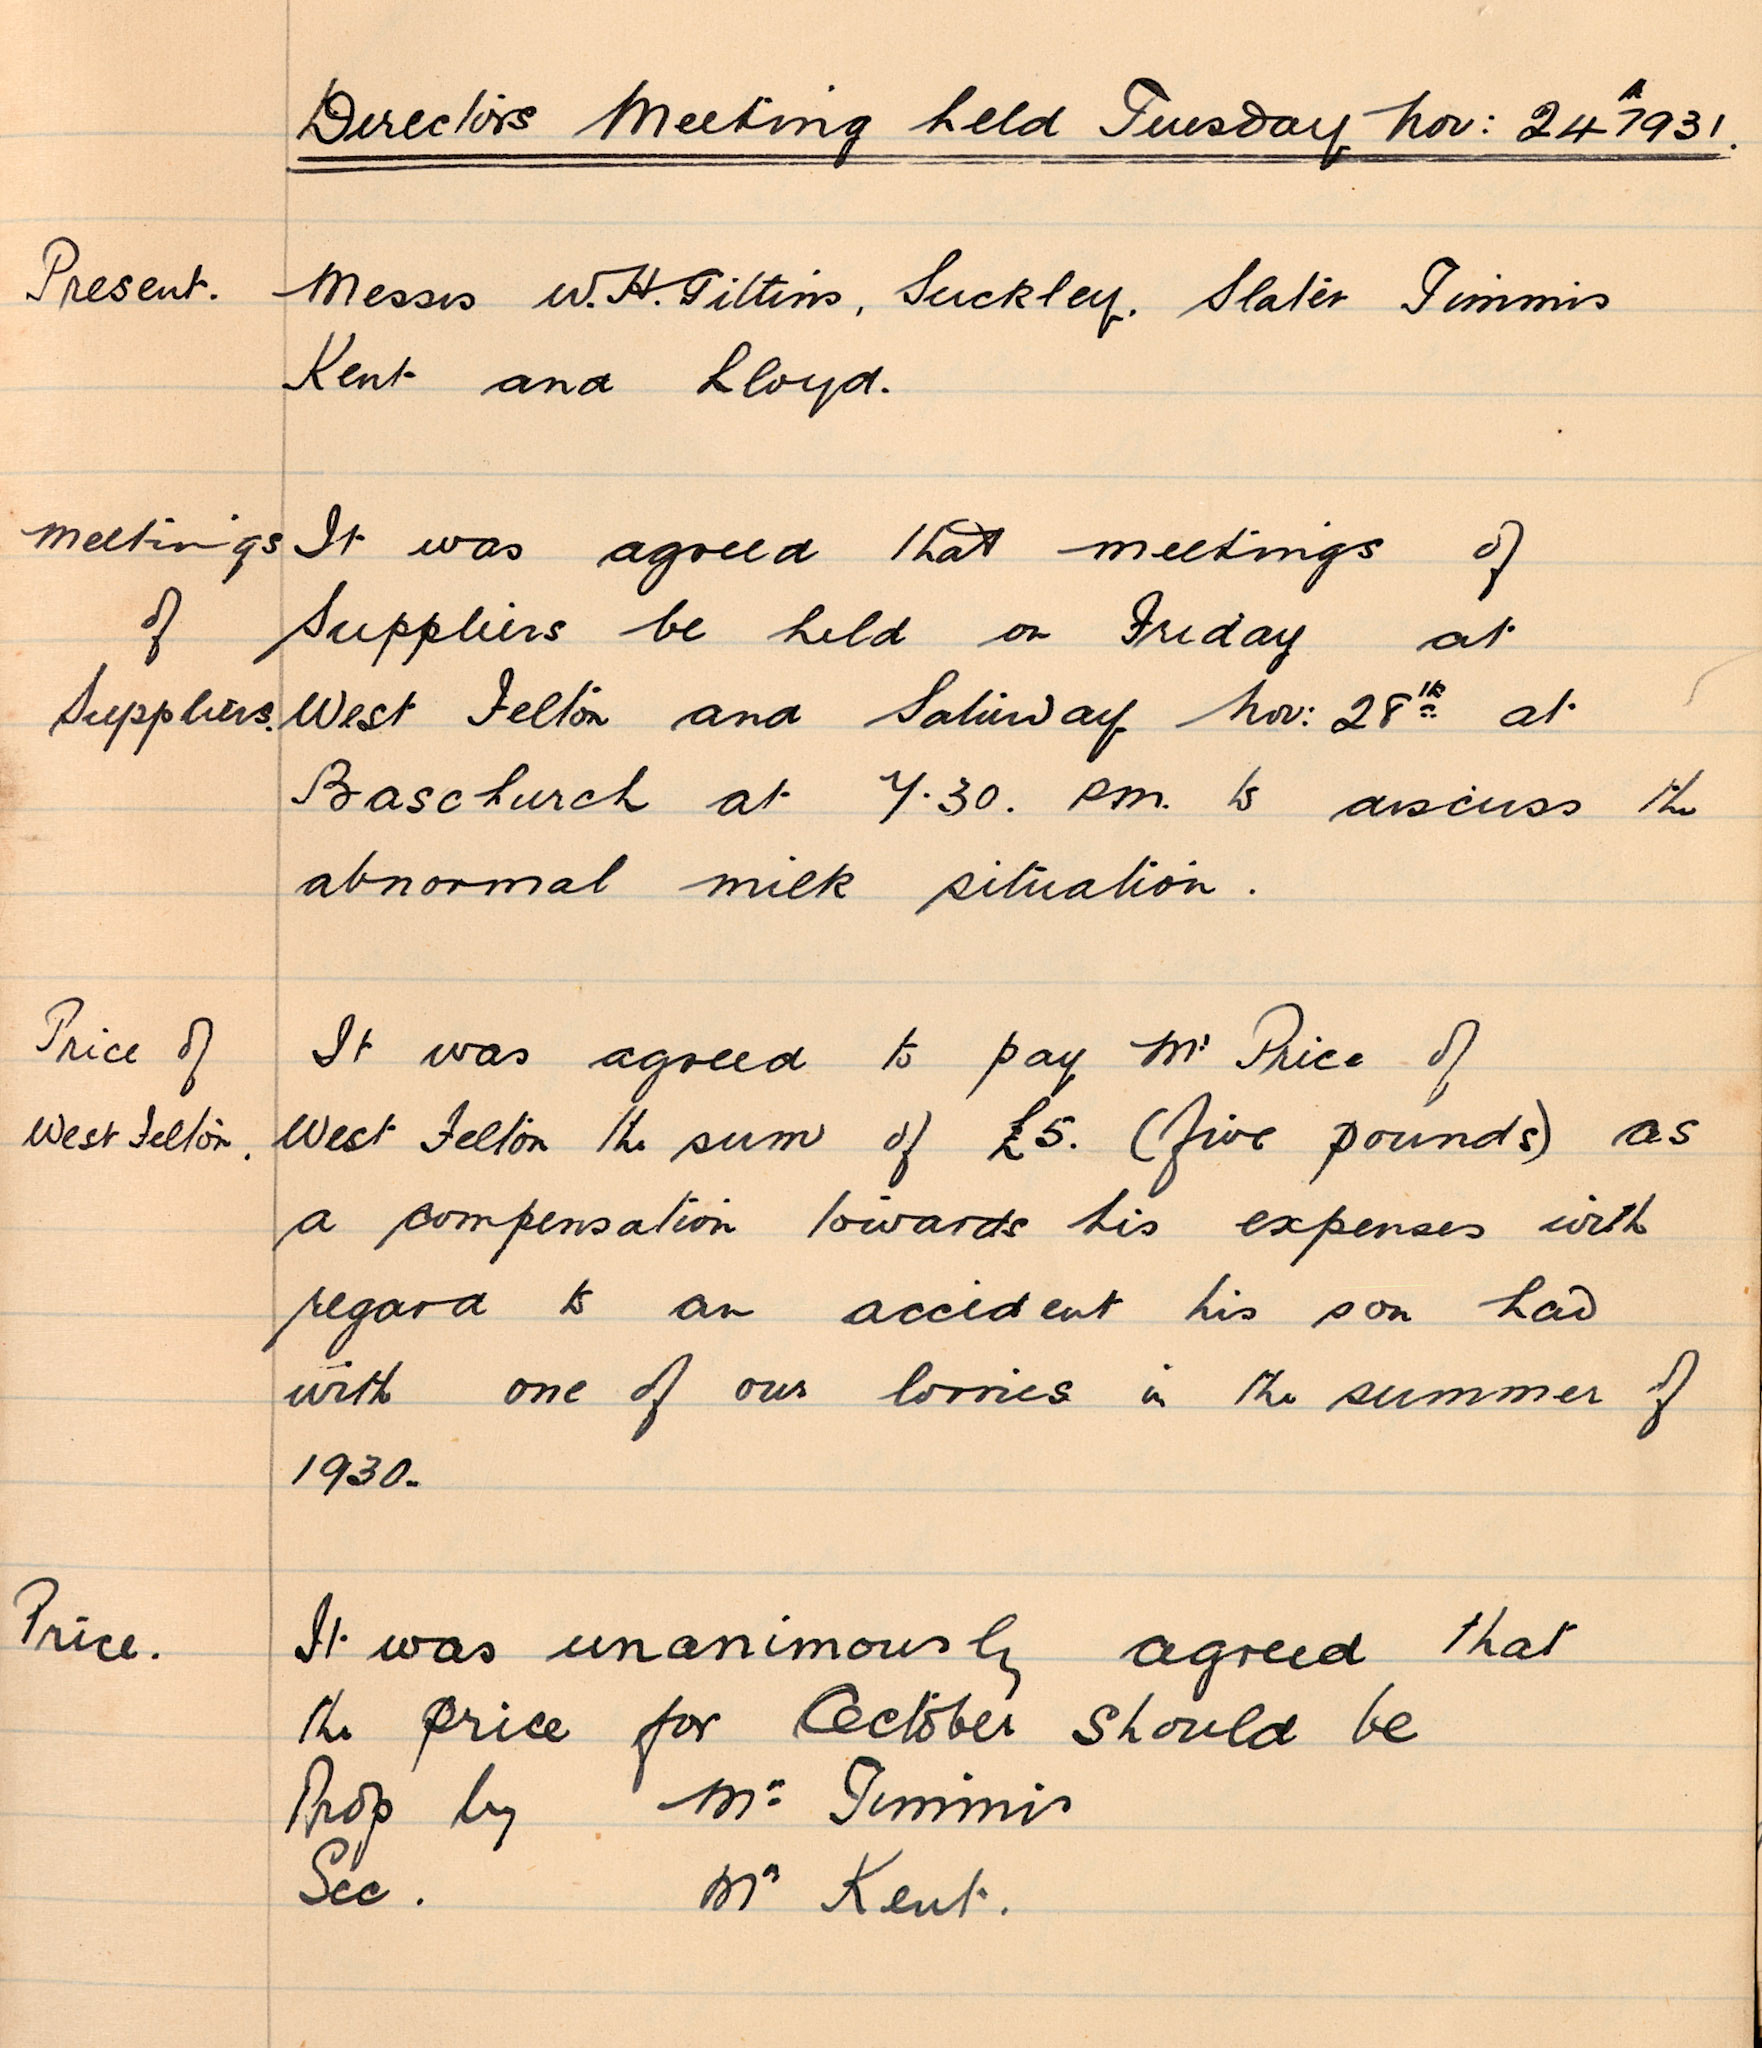 Directors Meeting held Tuesday Nov: 24th 1931.
Present. Messrs W.H. Tittins, Suckley. Slater Timmis
Kent and Lloyd.
Meetings It was agreed that meetings of
of Suppliers be held on Friday at
Suppliers. West Felton and Saturday Nov: 28th at
Baschurch at 7.30. P.M. to discuss the
abnormal milk situation.
Price of It was agreed to pay Mr Price of
West Felton. West Felton the sum of £5. (five pounds) as
a compensation towards his expenses with
regard to an accident his son had
with one of our lorries in the summer of
1930.
Price. It was unanimously agreed that
the price for October should be
Prop by Mr Timmis
Sec. Mr Kent.